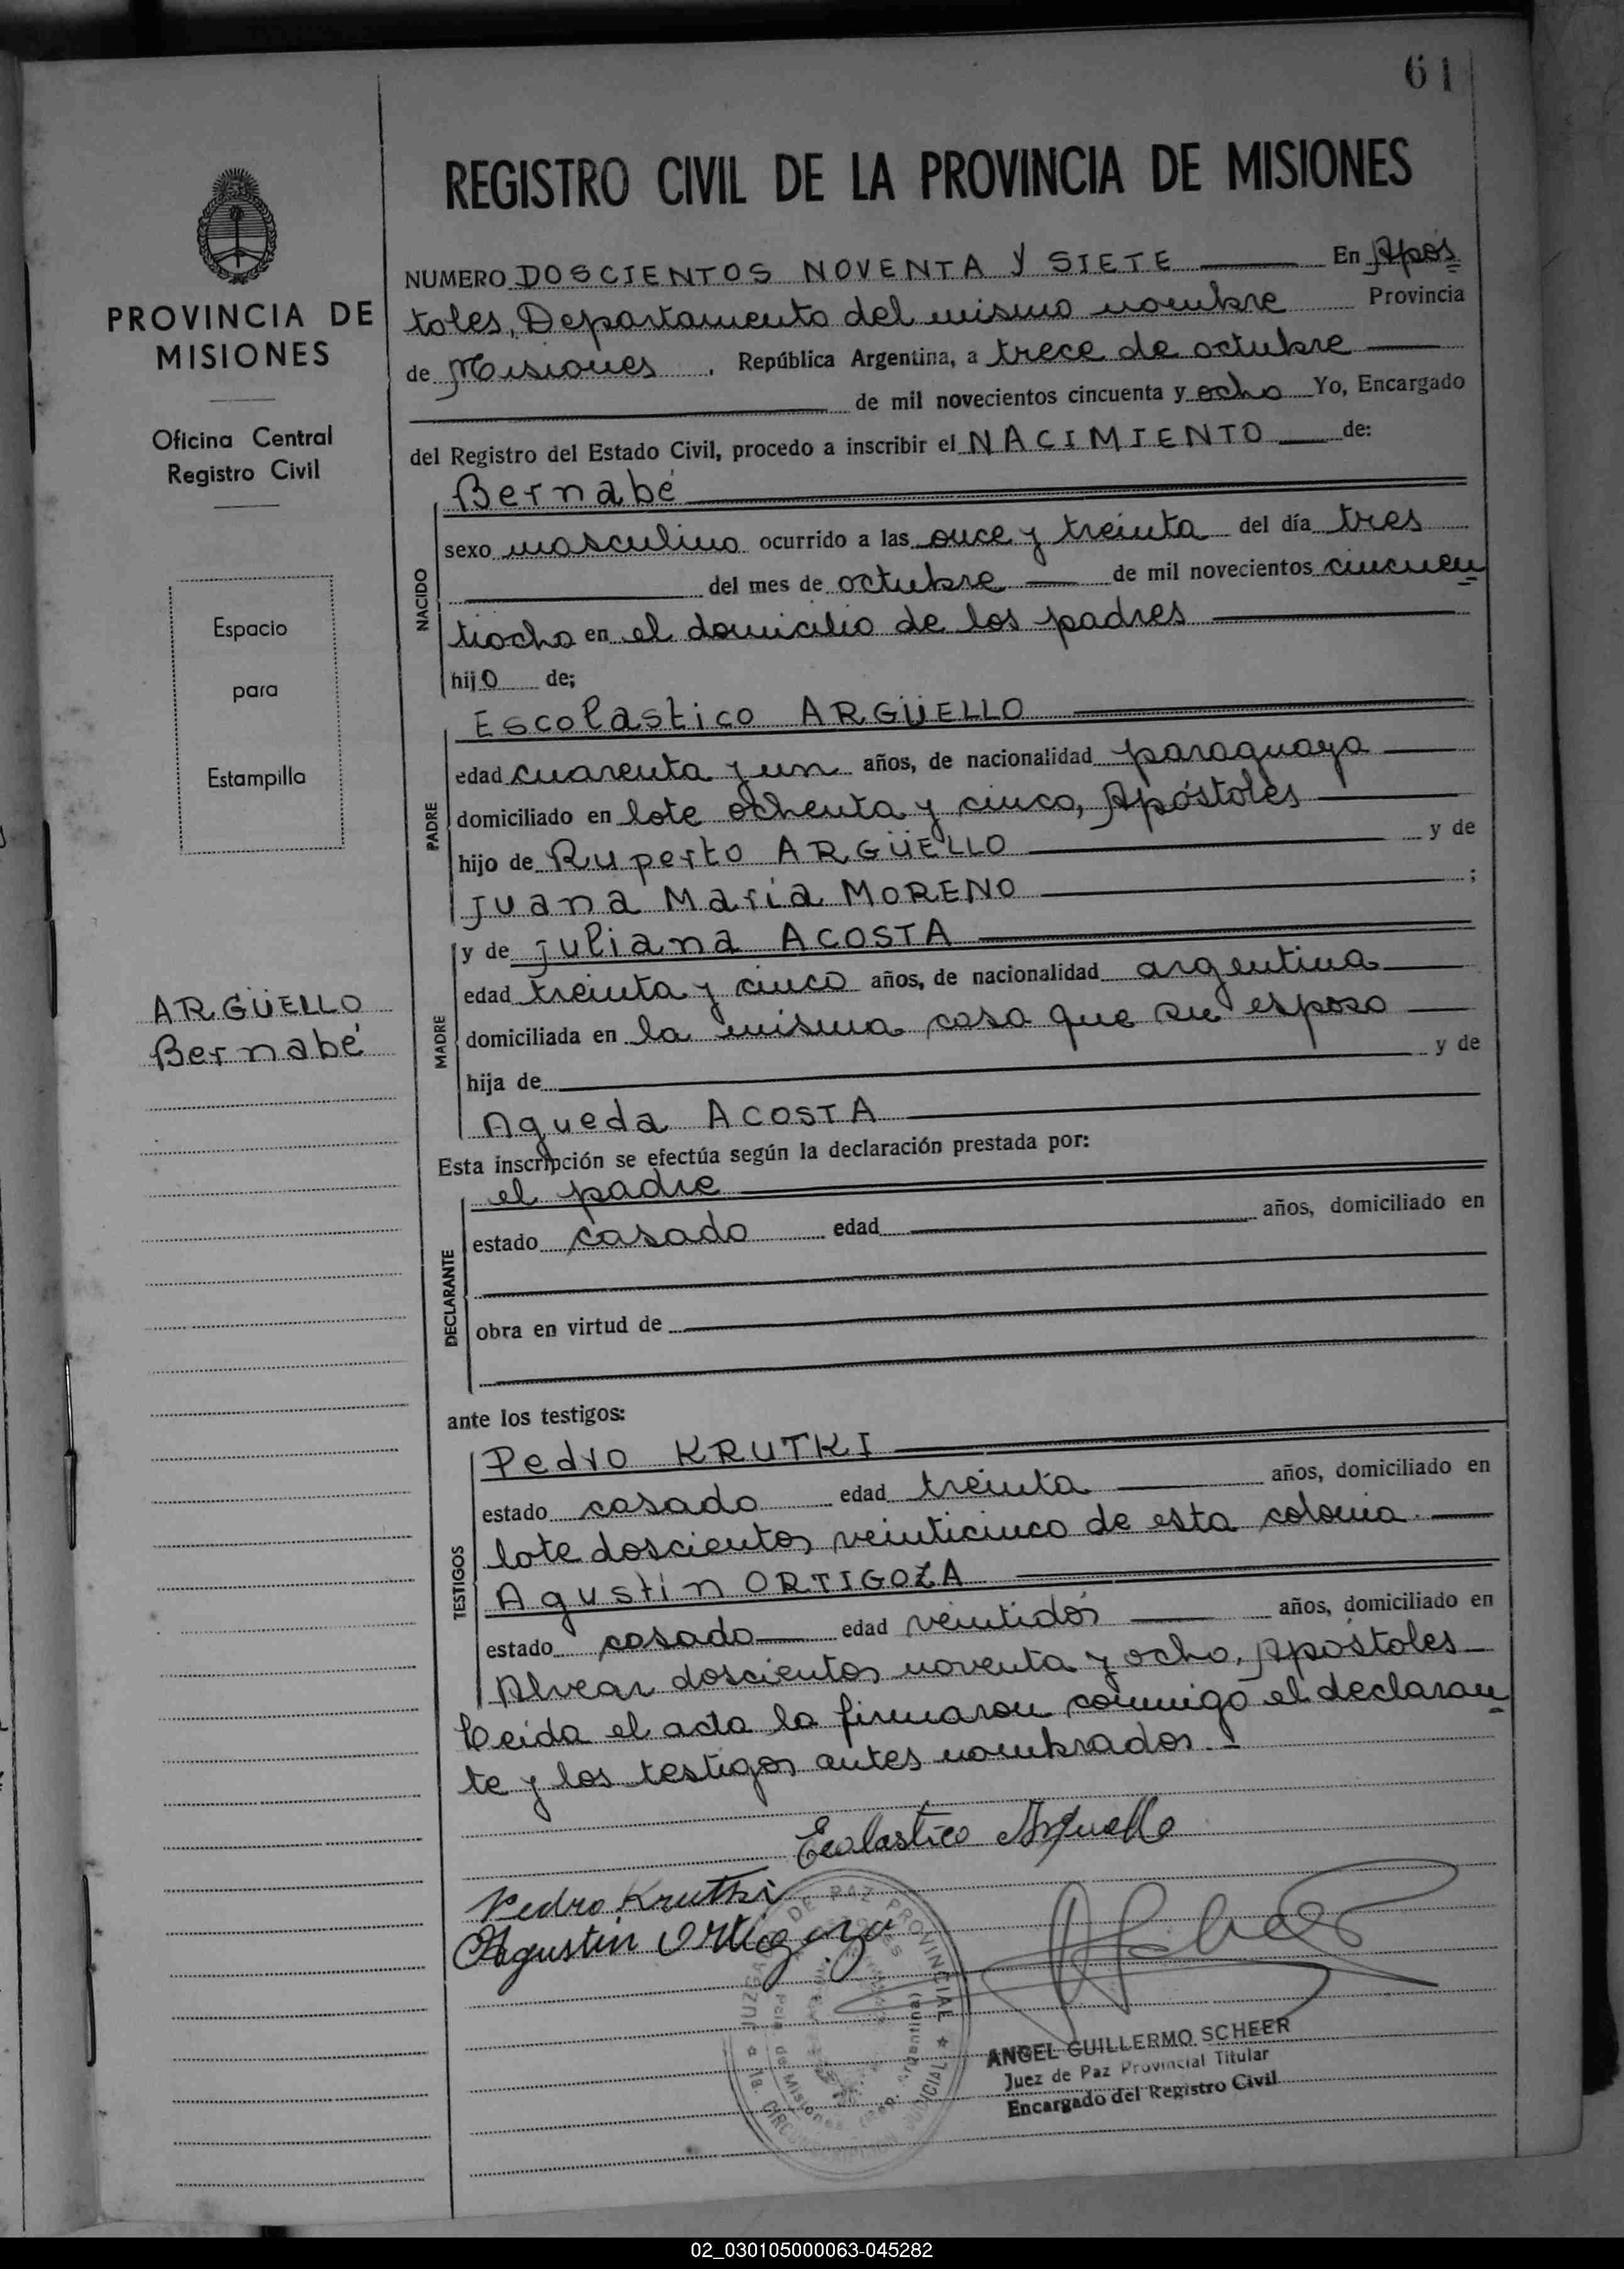 61
REGISTRO CIVIL DE LA PROVINCIA DE MISIONES
PROVINCIA DE
MISIONES
Oficina Central
Registro Civil
Espacio
para
Estampilla
ARGÜELLO
Bernabé
NUMERO DOSCIENTOS NOVENTA Y SIETE En Após
toles, Departamento del mismo nombre Provincia
de Misiones, República Argentina, a trece de octubre
de mil novecientos cincuenta y ocho Yo, Encargado
del Registro del Estado Civil, procedo a inscribir el NACIMIENTO de:
NACIDO
Bernabé
sexo masculino ocurrido a las once y treinta del día tres
del mes de octubre de mil novecientos cincuen
tiocho en el domicilio de los padres
hijo de;
PADRE
Escolastico ARGÜELLO
edad cuarenta y un años, de nacionalidad paraguaya
domiciliado en lote ochenta y cinco, Apóstoles
hijo de Ruperto ARGÜELLO y de
Juana María MORENO ;
MADRE
y de Juliana ACOSTA
edad treinta y cinco años, de nacionalidad argentina
domiciliada en la misma casa que su esposo
hija de y de
Agueda ACOSTA
Esta inscripción se efectúa según la declaración prestada por:
DECLARANTE
el padre
estado casado edad años, domiciliado en
obra en virtud de
ante los testigos:
TESTIGOS
Pedro KRUTKI
estado casado edad treinta años, domiciliado en
lote doscientos veinticinco de esta colonia.
Agustín ORTIGOZA
estado casado edad veintidós años, domiciliado en
Alvear doscientos noventa y ocho, Apóstoles
Leida el acta la firmaron conmigo el declaran
te y los testigos antes nombrados.-
Ecolastico Arguello
Pedro Krutki
Agustin Ortigoza
JUZGADO DE PAZ PROVINCIAL
1a. CIRCUNSCRIPCION JUDICIAL
de Misiones (Rep. Argentina)
ANGEL GUILLERMO SCHEER
Juez de Paz Provincial Titular
Encargado del Registro Civil
02_030105000063-045282